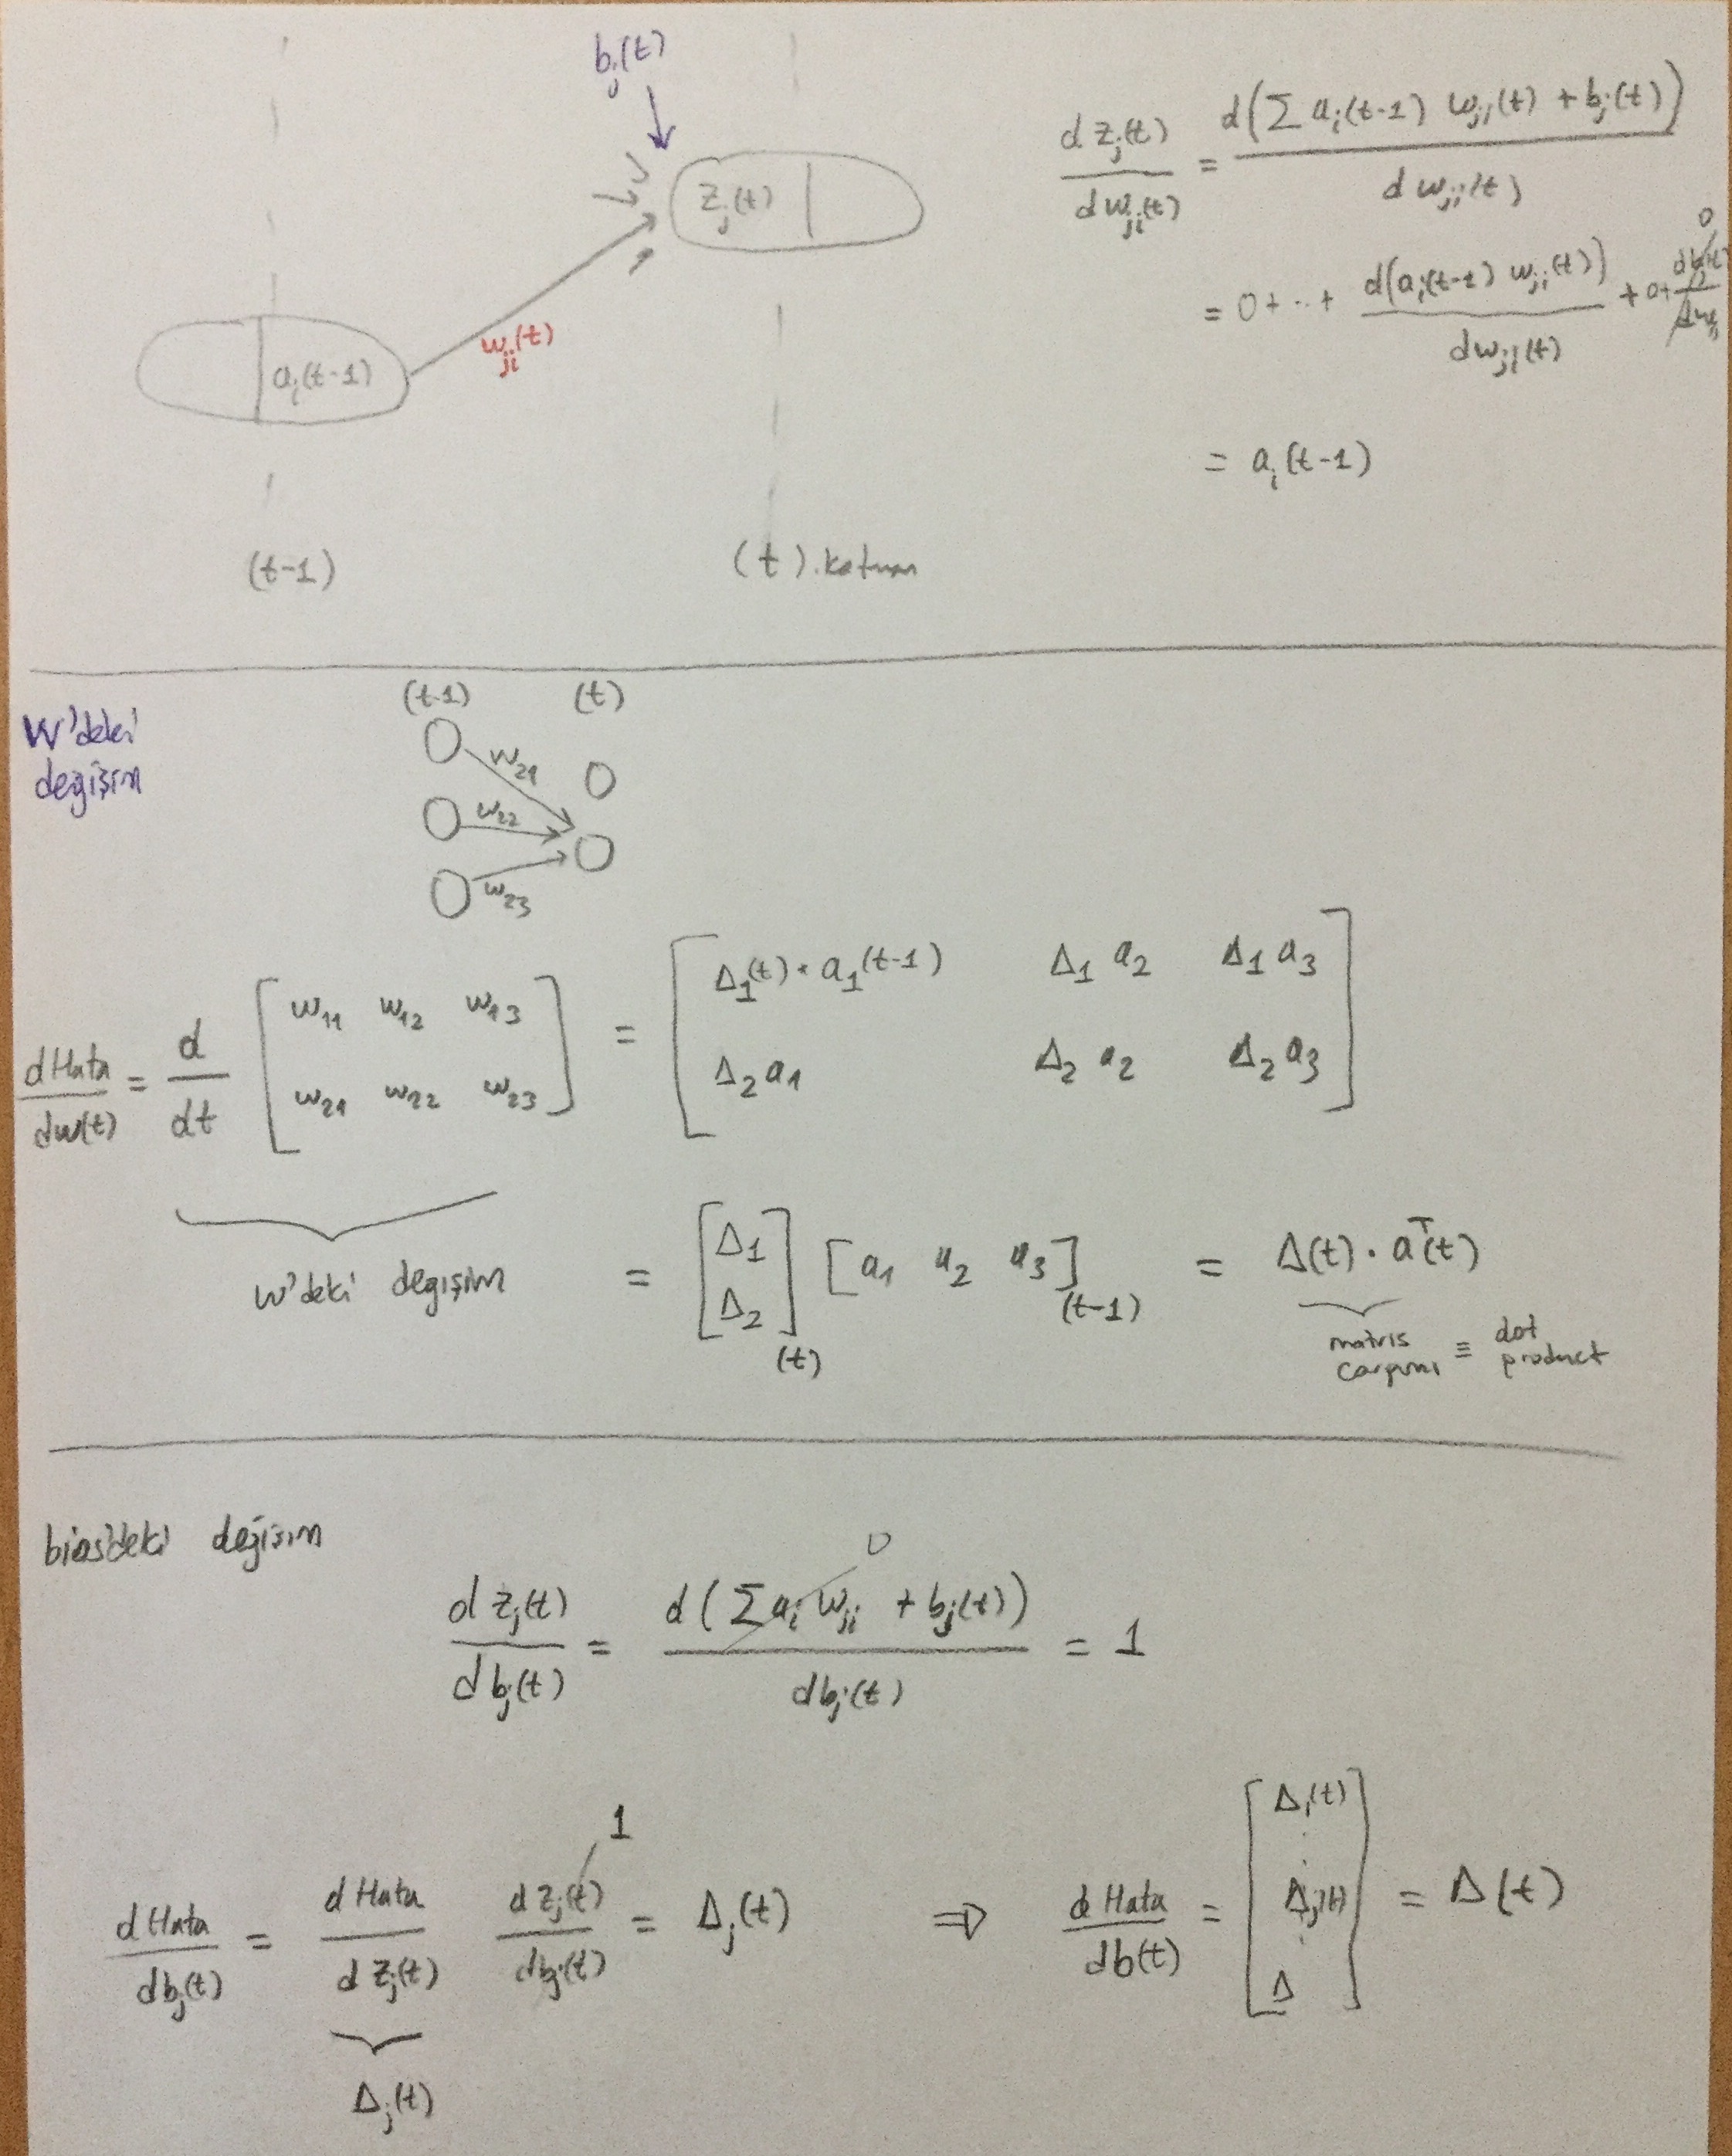 b_j(t)
z_j(t)
w_ji(t)
a_i(t-1)
(t-1) (t).katman
d z_j(t) / d w_ji(t) = d(Σ a_i(t-1) w_ji(t) + b_j(t)) / d w_ji(t)
= 0 + ... + d(a_i(t-1) w_ji(t)) / d w_ji(t) + 0 +
0
= a_i(t-1)
W'deki
değişim
(t-1) (t)
w_21
w_22
w_23
d Hata / d w(t) = d / dt [ w_11 w_12 w_13 ; w_21 w_22 w_23 ] = [ Δ_1(t) * a_1(t-1) Δ_1 a_2 Δ_1 a_3 ; Δ_2 a_1 Δ_2 a_2 Δ_2 a_3 ]
w'deki değişim
= [ Δ_1 ; Δ_2 ](t) [ a_1 a_2 a_3 ](t-1) = Δ(t) . a^T(t)
matris çarpımı ≡ dot product
bias'deki değişim
d z_j(t) / d b_j(t) = d(Σ a_i w_ji + b_j(t)) / d b_j(t) = 1
0
1
d Hata / d b_j(t) = d Hata / d z_j(t) d z_j(t) / d b_j(t) = Δ_j(t) ⇒ d Hata / d b(t) = [ Δ_1(t) ⋮ Δ_j(t) ⋮ Δ ] = Δ(t)
Δ_j(t)